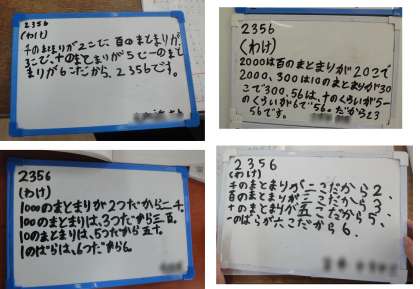 2356
(わけ)
千のまとまりが2こで、百のまとまりが、
3こで、十のまとまりが5で一のまと
まりが6こだから、2356です。
2356
(わけ)
2000は百のまとまりが20こで
2000、300は10のまとまりが30
こで300.56は、十のくらいが5一
のくらいが6で56。だから23
56です。
2356
(わけ)
1000のまとまりが2つだから二千。
100のまとまりは、3つだから三百。
10のまとまりは、5つだから五十。
1のばらは、6つだから6。
2356
(わけ)
千のまとまりが二こだから2、
百のまとまりが三こだから3、
十のまとまりが五こだから5、
一のばらが六こだから6.